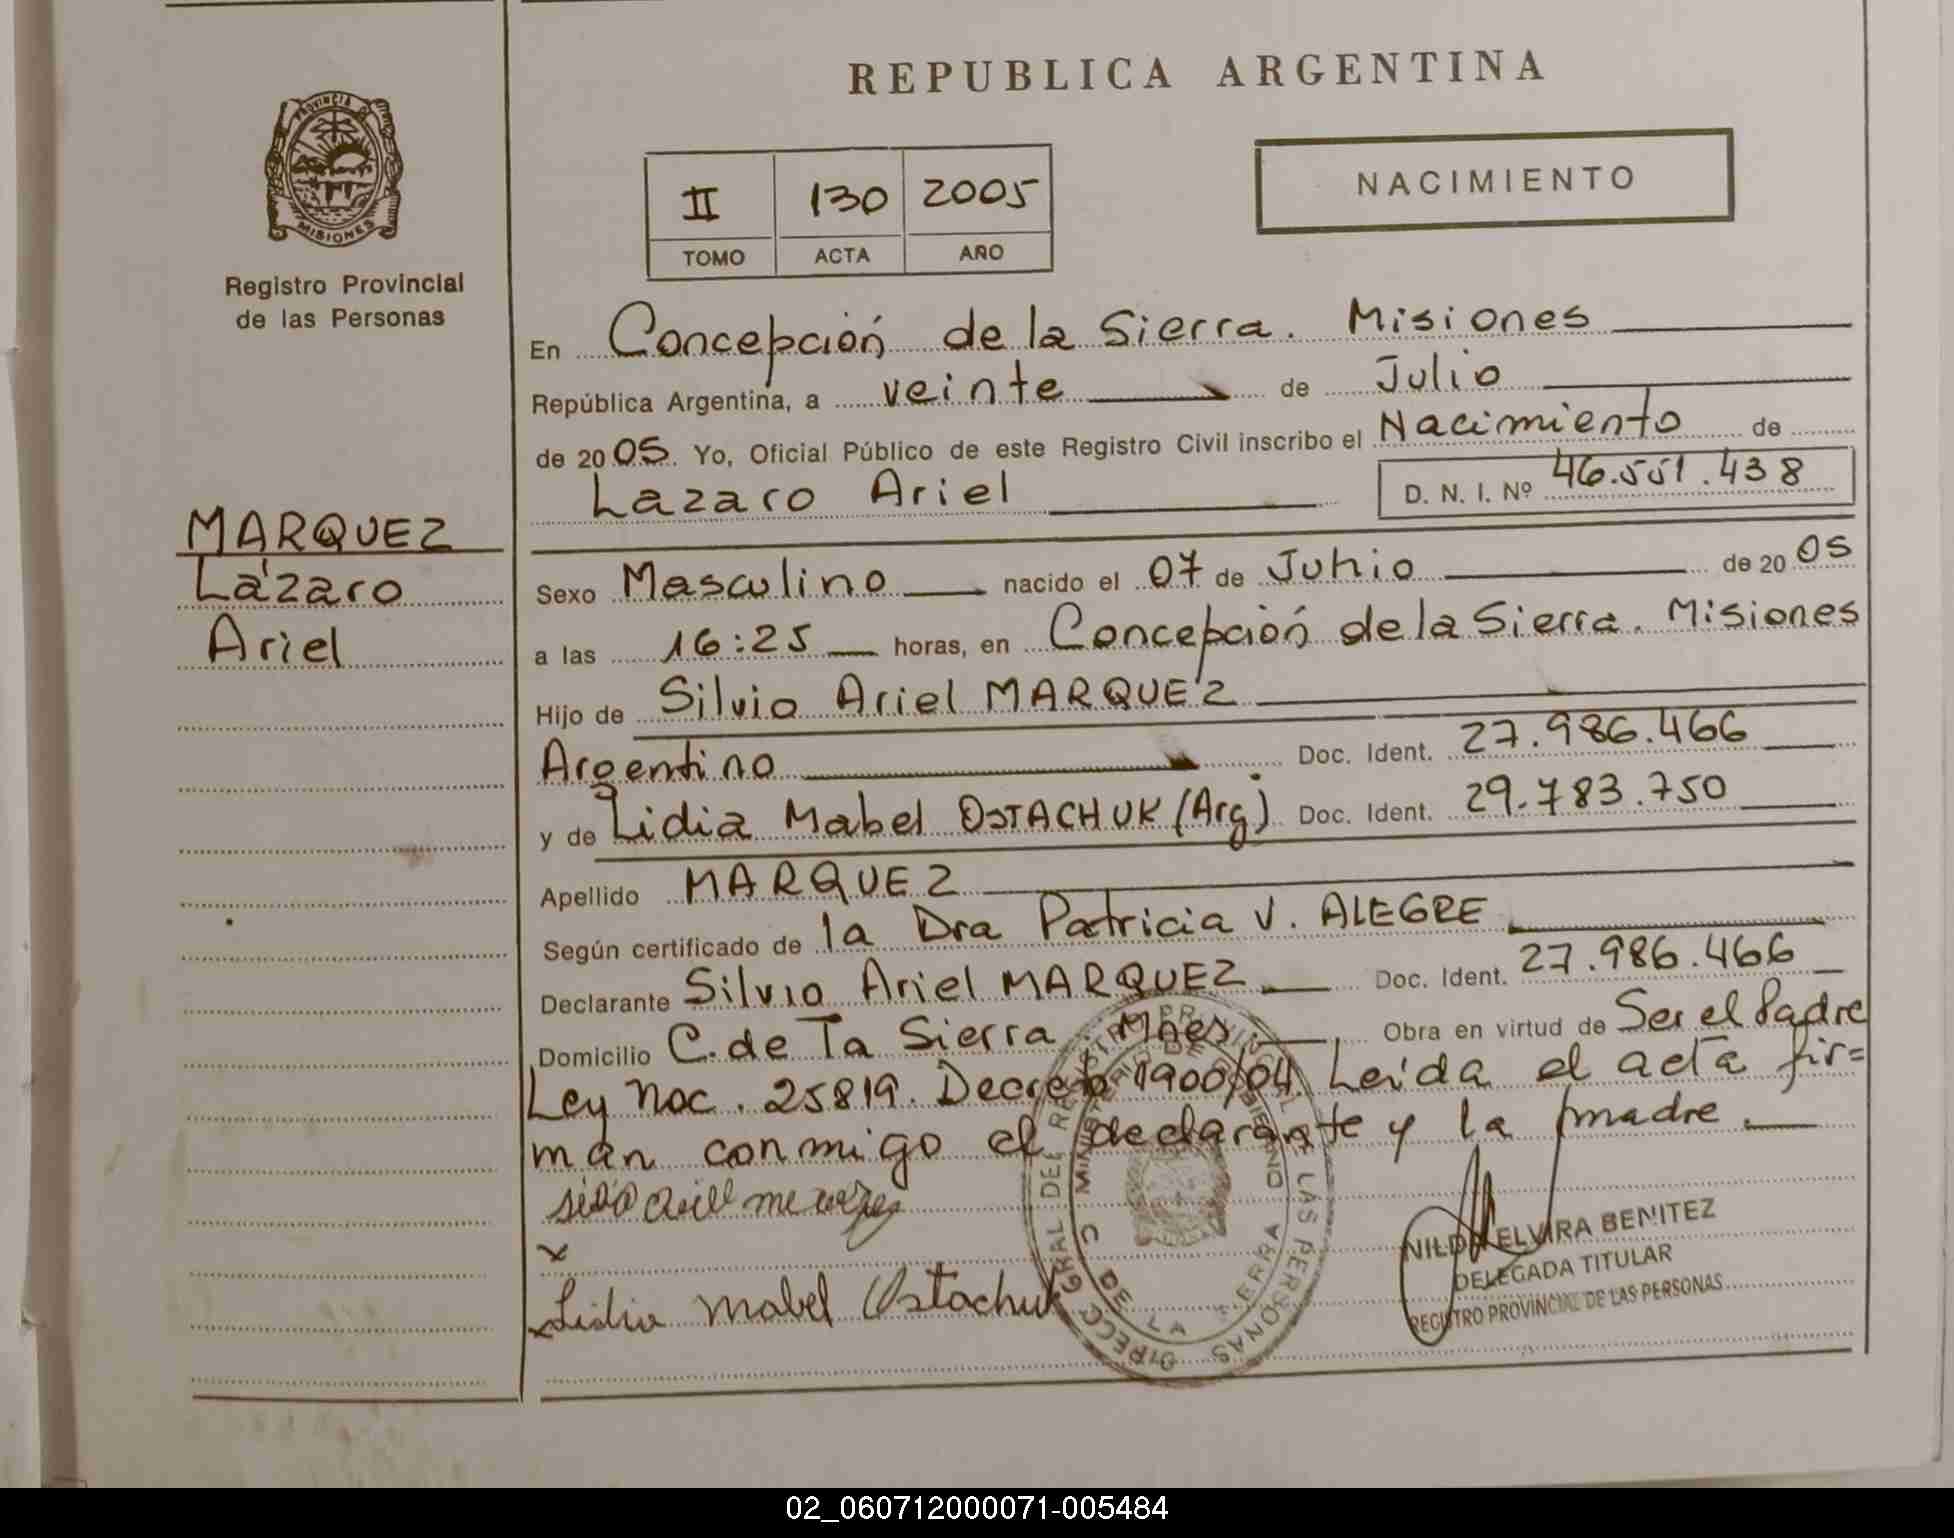 REPUBLICA ARGENTINA
PROVINCIA DE
MISIONES
Registro Provincial
de las Personas
II 130 2005
TOMO ACTA AÑO
NACIMIENTO
En Concepción de la Sierra. Misiones
República Argentina, a veinte de Julio
de 2005. Yo, Oficial Público de este Registro Civil inscribo el Nacimiento de
Lazaro Ariel D. N. I. Nº 46.551.438
MARQUEZ
Lázaro
Ariel
Sexo Masculino nacido el 07 de Junio de 2005
a las 16:25 horas, en Concepción de la Sierra. Misiones
Hijo de Silvio Ariel MARQUEZ
Argentino Doc. Ident. 27.986.466
y de Lidia Mabel OSTACHUK (Arg) Doc. Ident. 29.783.750
Apellido MARQUEZ
Según certificado de la Dra Patricia V. ALEGRE
Declarante Silvio Ariel MARQUEZ Doc. Ident. 27.986.466
Domicilio C. de la Sierra Mnes Obra en virtud de Ser el Padre
Ley Nac. 25819. Decreto 1900/04. Leída el acta fir=
man conmigo el declarante y la madre.
x
x Lidia Mabel Ostachuk
DIRECC. GRAL DEL REGISTRO PROVINCIAL DE LAS PERSONAS
MINISTERIO DE GOBIERNO
C. DE LA SIERRA
NILDA ELVIRA BENITEZ
DELEGADA TITULAR
REGISTRO PROVINCIAL DE LAS PERSONAS
02_060712000071-005484